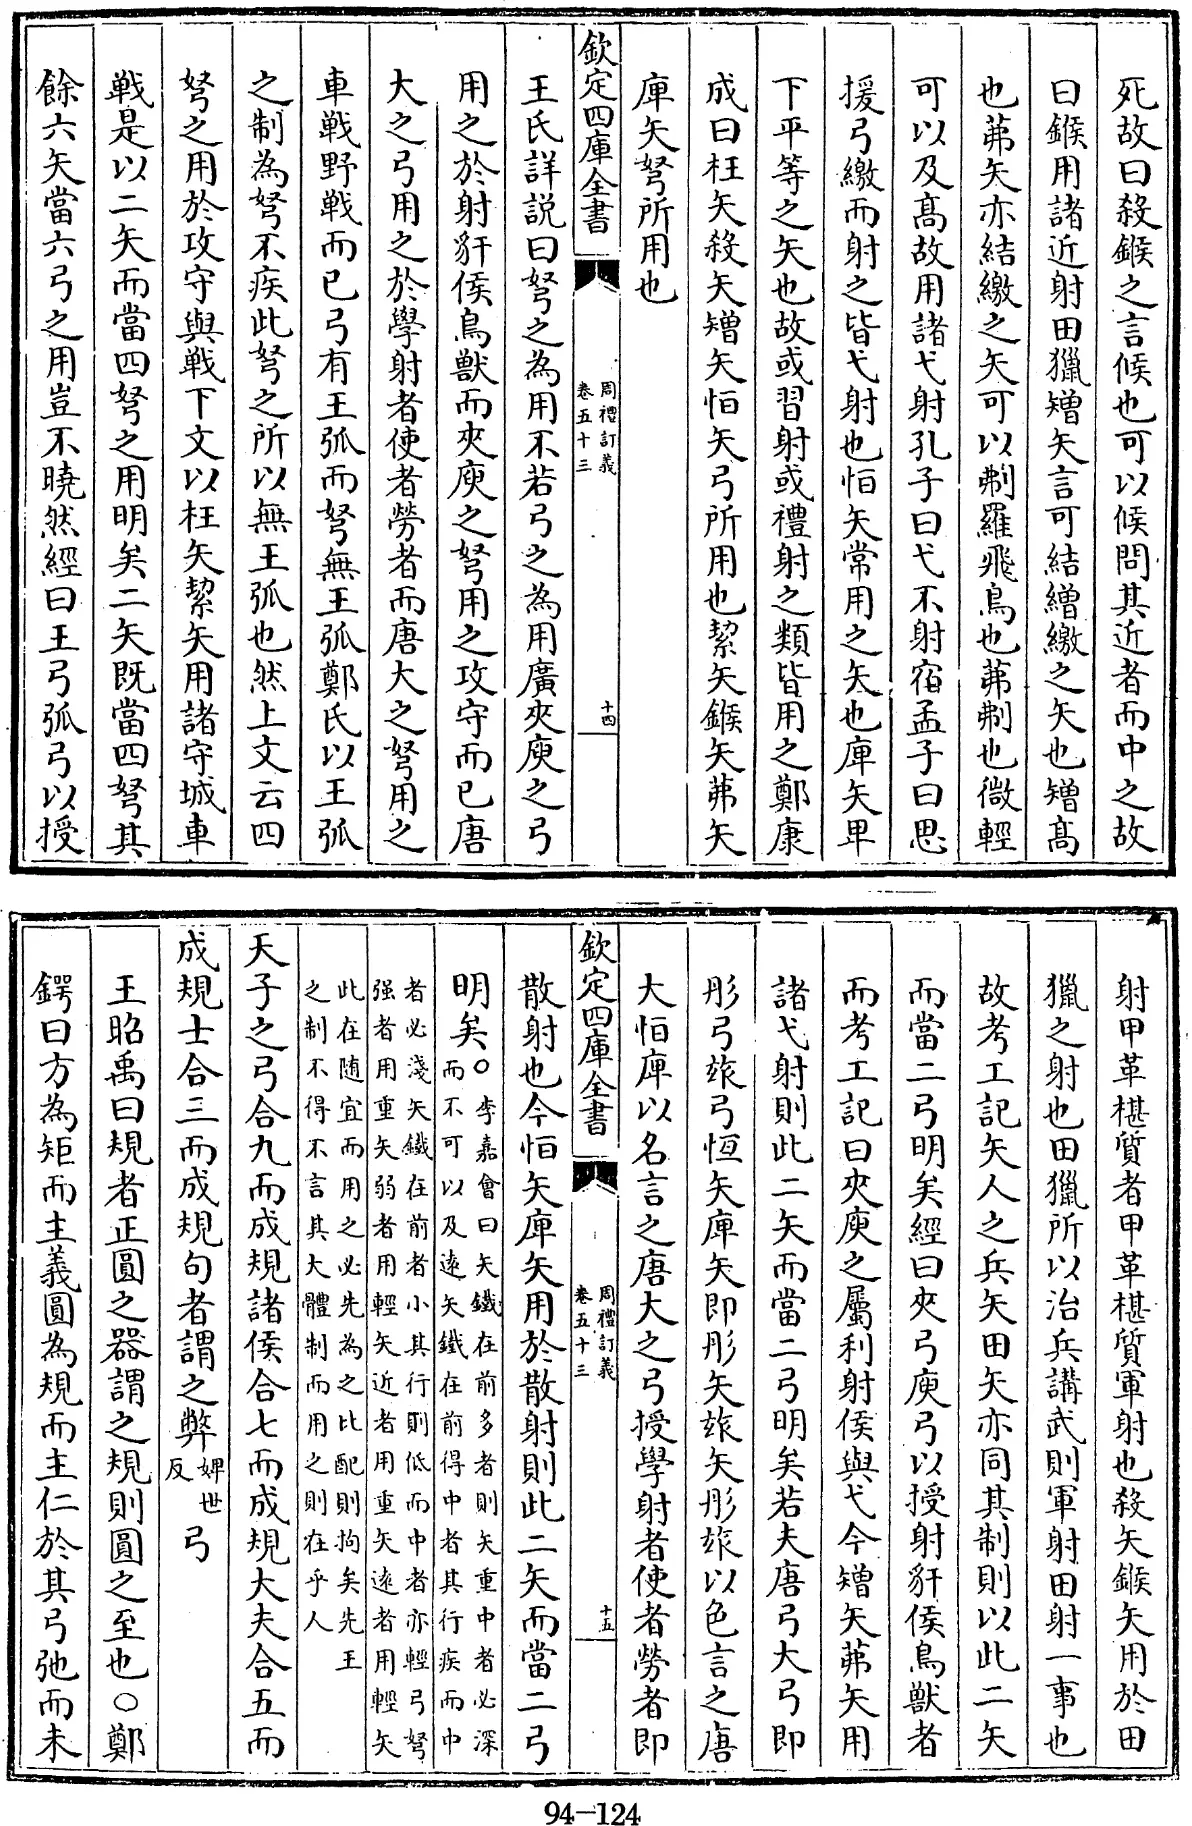 死故曰殺鍭之言候也可以候問其近者而中之故
曰鍭用諸近射田獵矰矢言可結繒繳之矢也矰高
也茀矢亦結繳之矢可以刜羅飛鳥也茀刜也微輕
可以及髙故用諸弋射孔子曰弋不射宿孟子曰思
援弓繳而射之皆弋射也恒矢常用之矢也庳矢卑
下平等之矢也故或習射或禮射之類皆用之鄭康
成曰枉矢殺矢矰矢恒矢弓所用也絜矢鍭矢茀矢
庳矢弩所用也
欽定四庫全書
周禮訂義
卷五十三
十四
王氏詳説曰弩之為用不若弓之為用廣夾庾之弓
用之於射豻侯鳥獸而夾庾之弩用之攻守而已唐
大之弓用之於學射者使者勞者而唐大之弩用之
車戰野戰而已弓有王弧而弩無王弧鄭氏以王弧
之制為弩不疾此弩之所以無王弧也然上文云四
弩之用於攻守與戰下文以枉矢絜矢用諸守城車
戰是以二矢而當四弩之用明矣二矢既當四弩其
餘六矢當六弓之用豈不曉然經曰王弓弧弓以授
射甲革椹質者甲革椹質軍射也殺矢鍭矢用於田
獵之射也田獵所以治兵講武則軍射田射一事也
故考工記矢人之兵矢田矢亦同其制則以此二矢
而當二弓明矣經曰夾弓庾弓以授射豻侯鳥獸者
而考工記曰夾庾之屬利射侯與弋今矰矢茀矢用
諸弋射則此二矢而當二弓明矣若夫唐弓大弓即
彤弓玈弓恒矢庳矢即彤矢玈矢彤玈以色言之唐
大恒庳以名言之唐大之弓授學射者使者勞者即
欽定四庫全書
周禮訂義
卷五十三
十五
散射也今恒矢庳矢用於散射則此二矢而當二弓
明矣○李嘉會曰矢鐵在前多者則矢重中者必深
而不可以及遠矢鐵在前得中者其行疾而中
者必淺矢鐵在前者小其行則低而中者亦輕弓弩
强者用重矢弱者用輕矢近者用重矢遠者用輕矢
此在随宜而用之必先為之比配則拘矣先王
之制不得不言其大體制而用之則在乎人
天子之弓合九而成規諸侯合七而成規大夫合五而
成規士合三而成規句者謂之弊婢世反弓
王昭禹曰規者正圓之器謂之規則圓之至也○鄭
鍔曰方為矩而主義圓為規而主仁於其弓弛而未
94-124